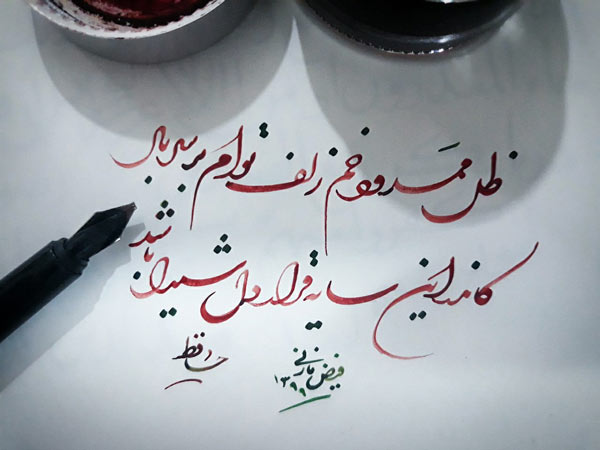 ظل ممدود خم زلف توام بر سر باد
کاندر این سایه قرار دل شیدا باشد
حافظ
۱۳۹۹